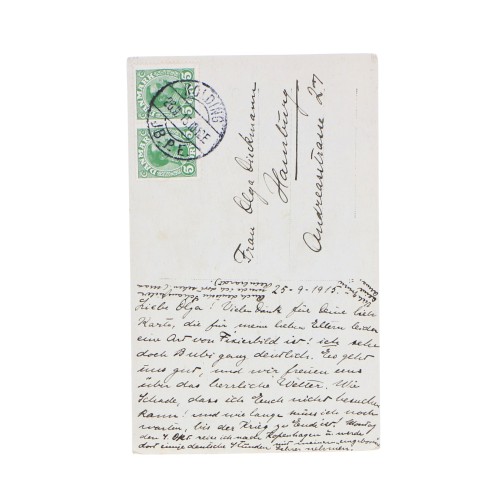 DANMARK
5 ØRE 5
DANMARK
5 ØRE 5
KOLDING
JB.P.E.
Frau Olga Dieckmann
Hamburg
Andreasstrasse 27
25-9-1915.
Liebe Olga! Vielen Dank für Deine lieb
Karte, die für meine lieben Eltern leider
eine Art von Fixierbild ist! ich sehe
doch Bubi ganz deutlich. Es geht
uns gut, und wir freuen uns
über das herrliche Wetter. Wie
Schade, dass ich Euch nicht besuchen
kann! und wie lange muss ich noch
warten, bis der Krieg zu Ende ist! Montag
den 4 Okt. reise ich nach Kopenhagen u. werde
dort einige deutsche Stunden mit meinem
Lehrer nehmen.